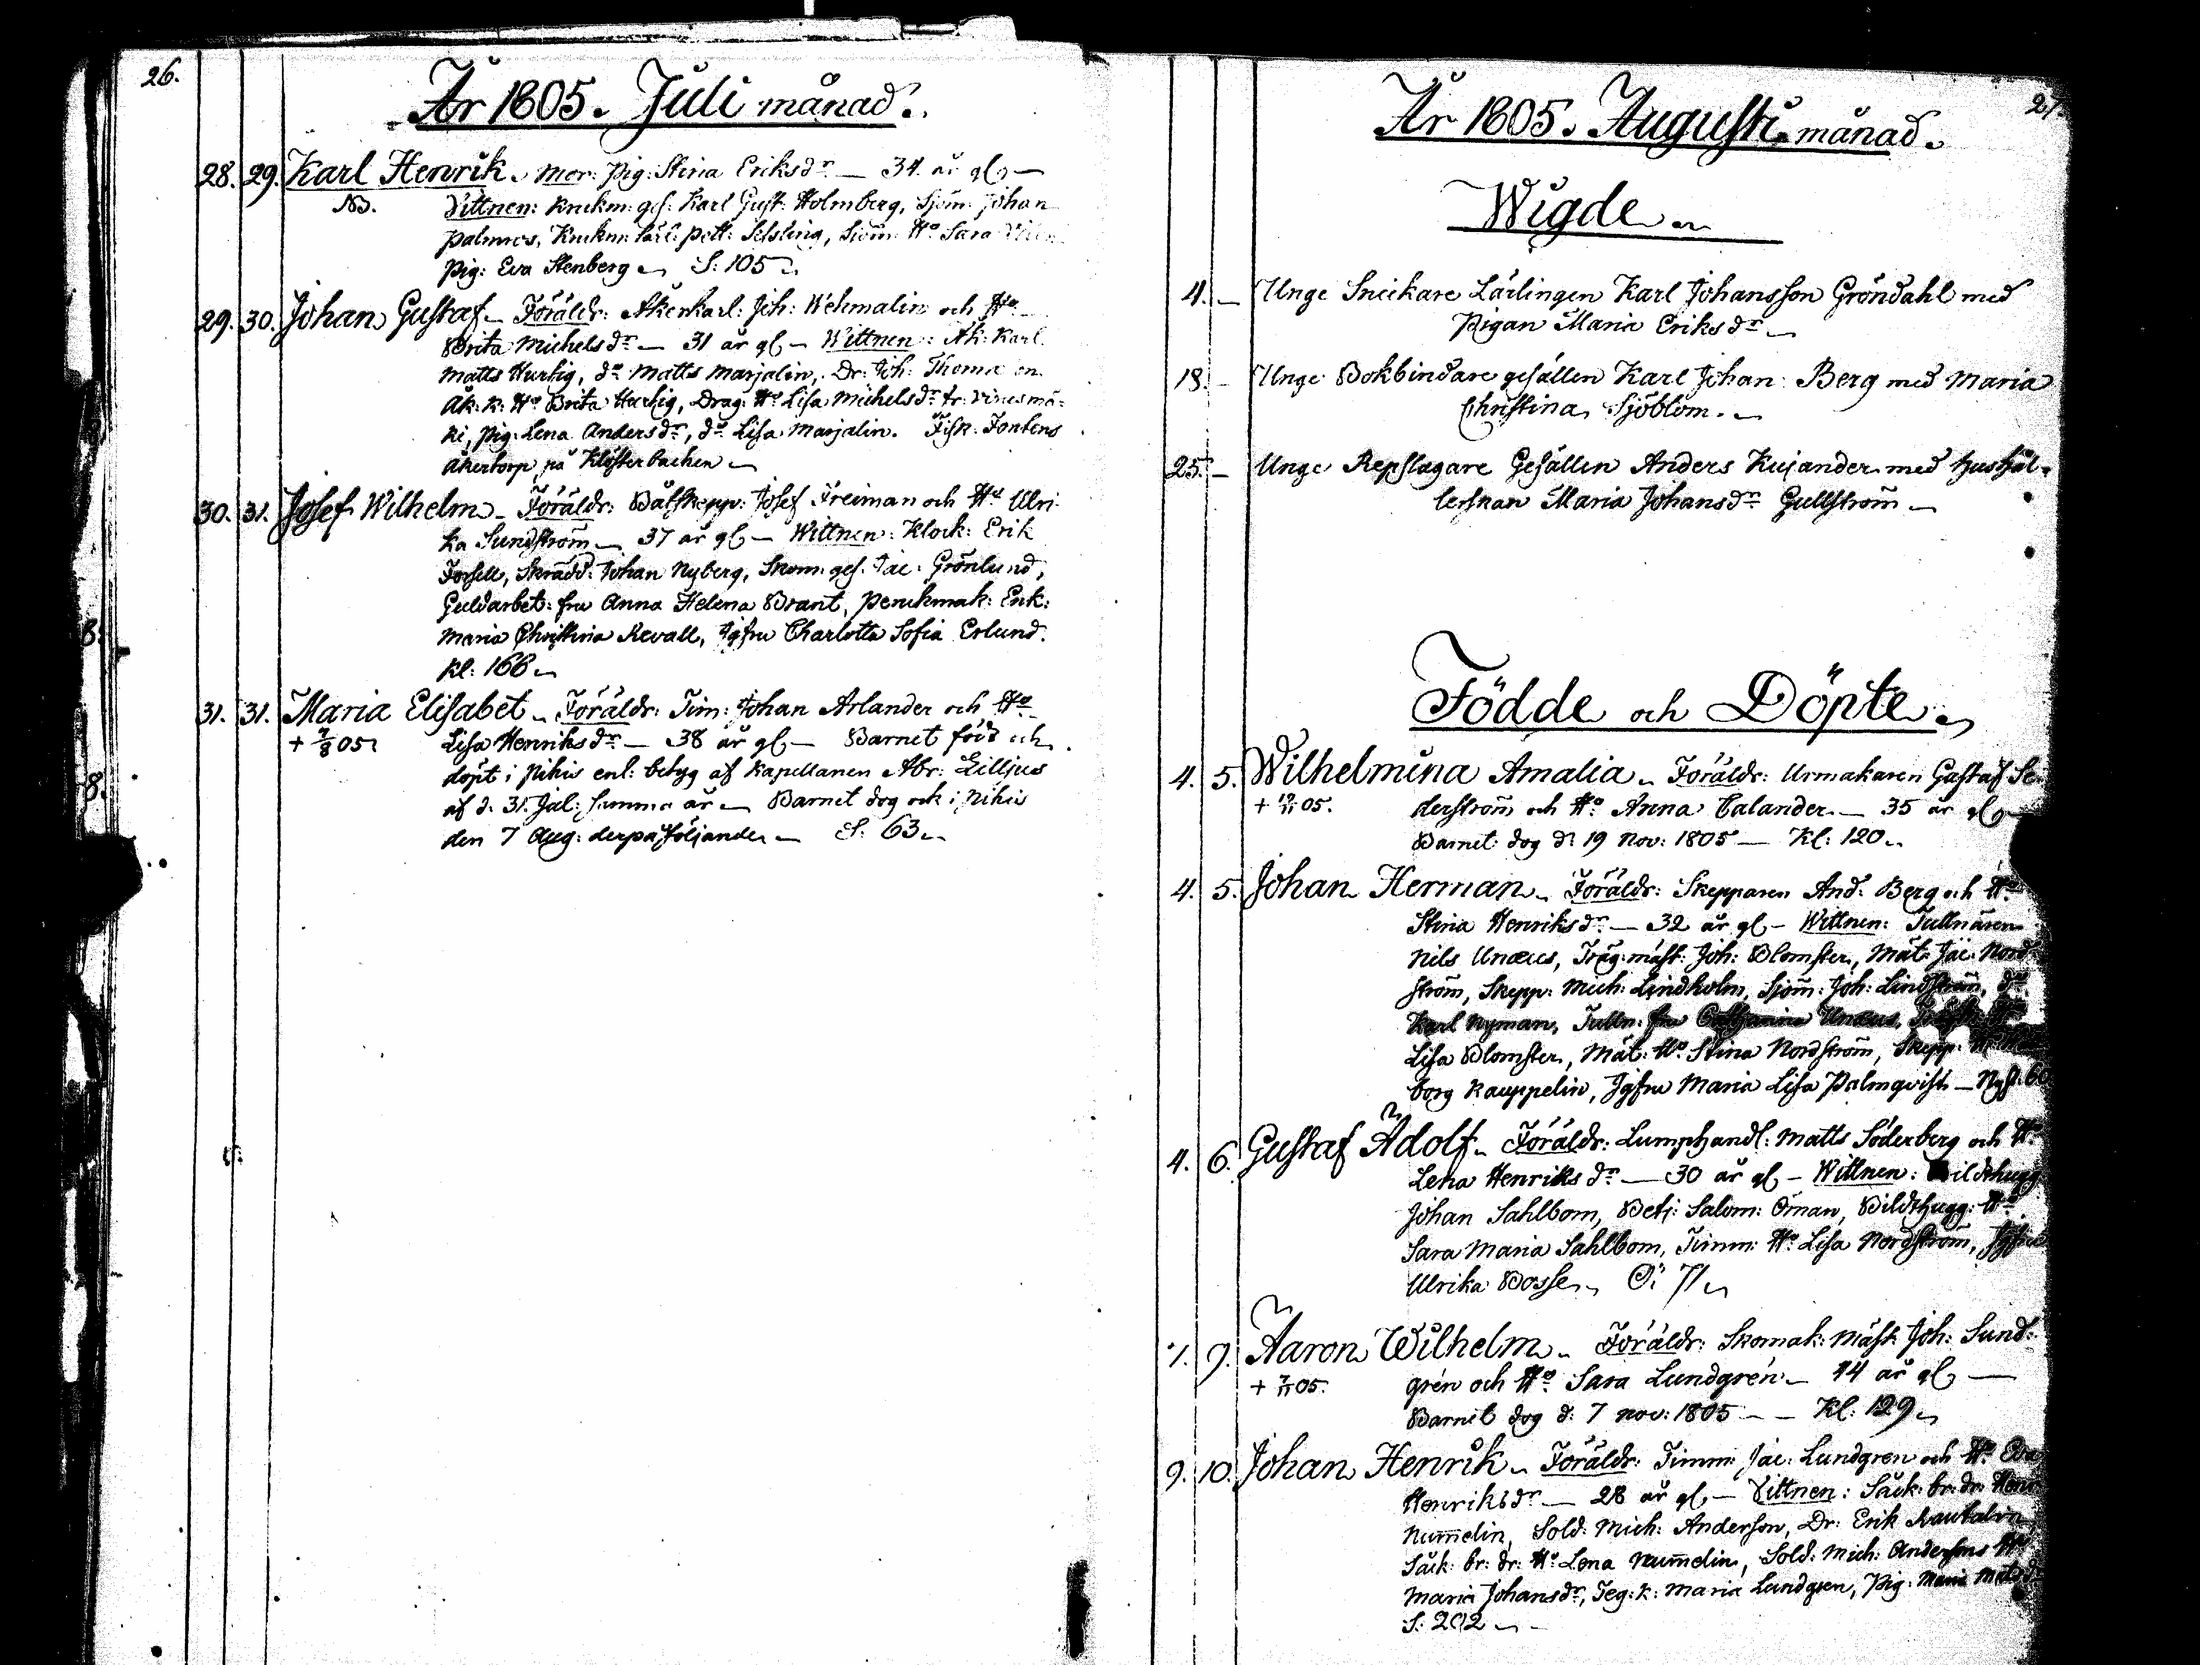 26.
År 1805. Juli månad.
28. 29. Karl Henrik. Mor: Pig: Stina Eriksdr — 34 år gl —
NB. Vittnen: Knekm: ges: Karl Gust: Holmberg, Sjöm: Johan
Palmros, Knekm: lärl: Pett: Selsling, Sjöm: Ho Sara
Pig: Eva Stenberg — S: 105
29. 30. Johan Gustaf — Föräldr: Åkerkarl: Joh: Wehmalin och Ho
Brita Michelsdr — 31 år gl — Wittnen: Åk: Karl
Matts Hurtig, do Matts Marjalin, Dr: Joh:
Åk: k: Ho Brita Hurtig, Drag: Ho Lisa Michelsdr fr: Virusmä-
ki, Pig: Lena Andersdr, do Lisa Marjalin. Fisk: Fontens
åkertorp på Klösterbacken —
30. 31. Josef Wilhelm — Föräldr: Båtskepp: Josef Freiman och Ho Ulri-
ka Sundström — 37 år gl — Wittnen: Klock: Erik
Forsell, Skrädd: Johan Nyberg, Skom: ges: Jac: Grönlund,
Guldarbet: fru Anna Helena Brant, Perukmak: Enk:
Maria Christina Revall, Jgfru Charlotta Sofia Erlund.
Kl: 166 —
31. 31. Maria Elisabet — Föräldr: Tim: Johan Arlander och Ho
+ 7/8 05 Lisa Henriksdr — 38 år gl — Barnet född och
döpt i Pikis enl: betyg af Kapellanen Abr: Lilljus
af d: 31. Jul: samma år — Barnet dog ock i Pikis
den 7 Aug: derpåföljande — S: 63 —
27.
År 1805. Augusti månad.
Wigde
4. — Unge Snickare Lärlingen Karl Johansson Gröndahl med
Pigan Maria Eriksdr —
18. — Unge Bokbindare gesällen Karl Johan Berg med Maria
Christina Sjöblom. —
25. — Unge Repslagare Gesällen Anders Kujander med hushål-
lerskan Maria Johansdr Gullström —
Födde och Döpte
4. 5. Wilhelmina Amalia — Föräldr: Urmakaren Gustaf Se-
+ 19/11 05. derström och Ho Anna Calander — 35 år gl —
Barnet dog d: 19 Nov: 1805 — Kl: 120 —
4. 5. Johan Herman — Föräldr: Skepparen And: Berg och Ho
Stina Henriksdr — 32 år gl — Wittnen: Tullnären
Nils Unæus, Träg: mäst: Joh: Blomster, Mät: Jac: Nord-
ström, Skepp: Mich: Lindholm, Sjöm: Joh: Lindström, do
Karl Nyman, Tulln: fru Catharina Unæus,
Lisa Blomster, Mät: Ho Stina Nordström, Skepp:
borg Kauppelin, Jgfru Maria Lisa Palmqvist — Nyst: 60
4. 6. Gustaf Adolf — Föräldr: Lumphandl: Matts Söderberg och Ho
Lena Henriksdr — 30 år gl — Wittnen: Bildthugg:
Johan Sahlbom, Betj: Salom: Öman, Bildthugg: Ho
Sara Maria Sahlbom, Timm: Ho Lisa Nordström, Jgfru
Ulrika Bosse — Ö: 71 —
7. 9. Aaron Wilhelm — Föräldr: Skomak: Mäst: Joh: Sund-
+ 7/11 05. grén och Ho Sara Lundgrén — 44 år gl —
Barnet dog d: 7 Nov: 1805 — Kl: 129 —
9. 10. Johan Henrik — Föräldr: Timm: Jac: Lundgren och Ho Eva
Henriksdr — 28 år gl — Vittnen: Säck: br: dr:
Nummelin, Sold: Mich: Anderson, Dr: Erik Rautalin,
Säck: br: dr: Ho Lena Nummelin, Sold: Mich: Andersons Ho
Maria Johansdr, Teg: k: Maria Lundgren, Pig: Maria
S: 202 —